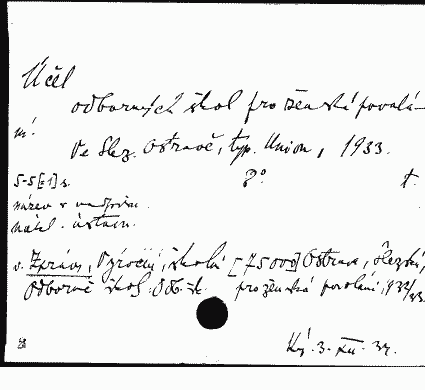 Účel
odborných škol pro ženská povolá-
ní.
Ve Slez. Ostravě, typ. Union, 1933.
5-5[±1] s. 8° t.
název v nadpisu.
nákl. ústavu.
v. Zpráva, Výroční, školní [75000] Ostrava, Slezská,
Odborné škol. Odb. šk. pro ženská povolání, 932/33.
3. XII. 34.